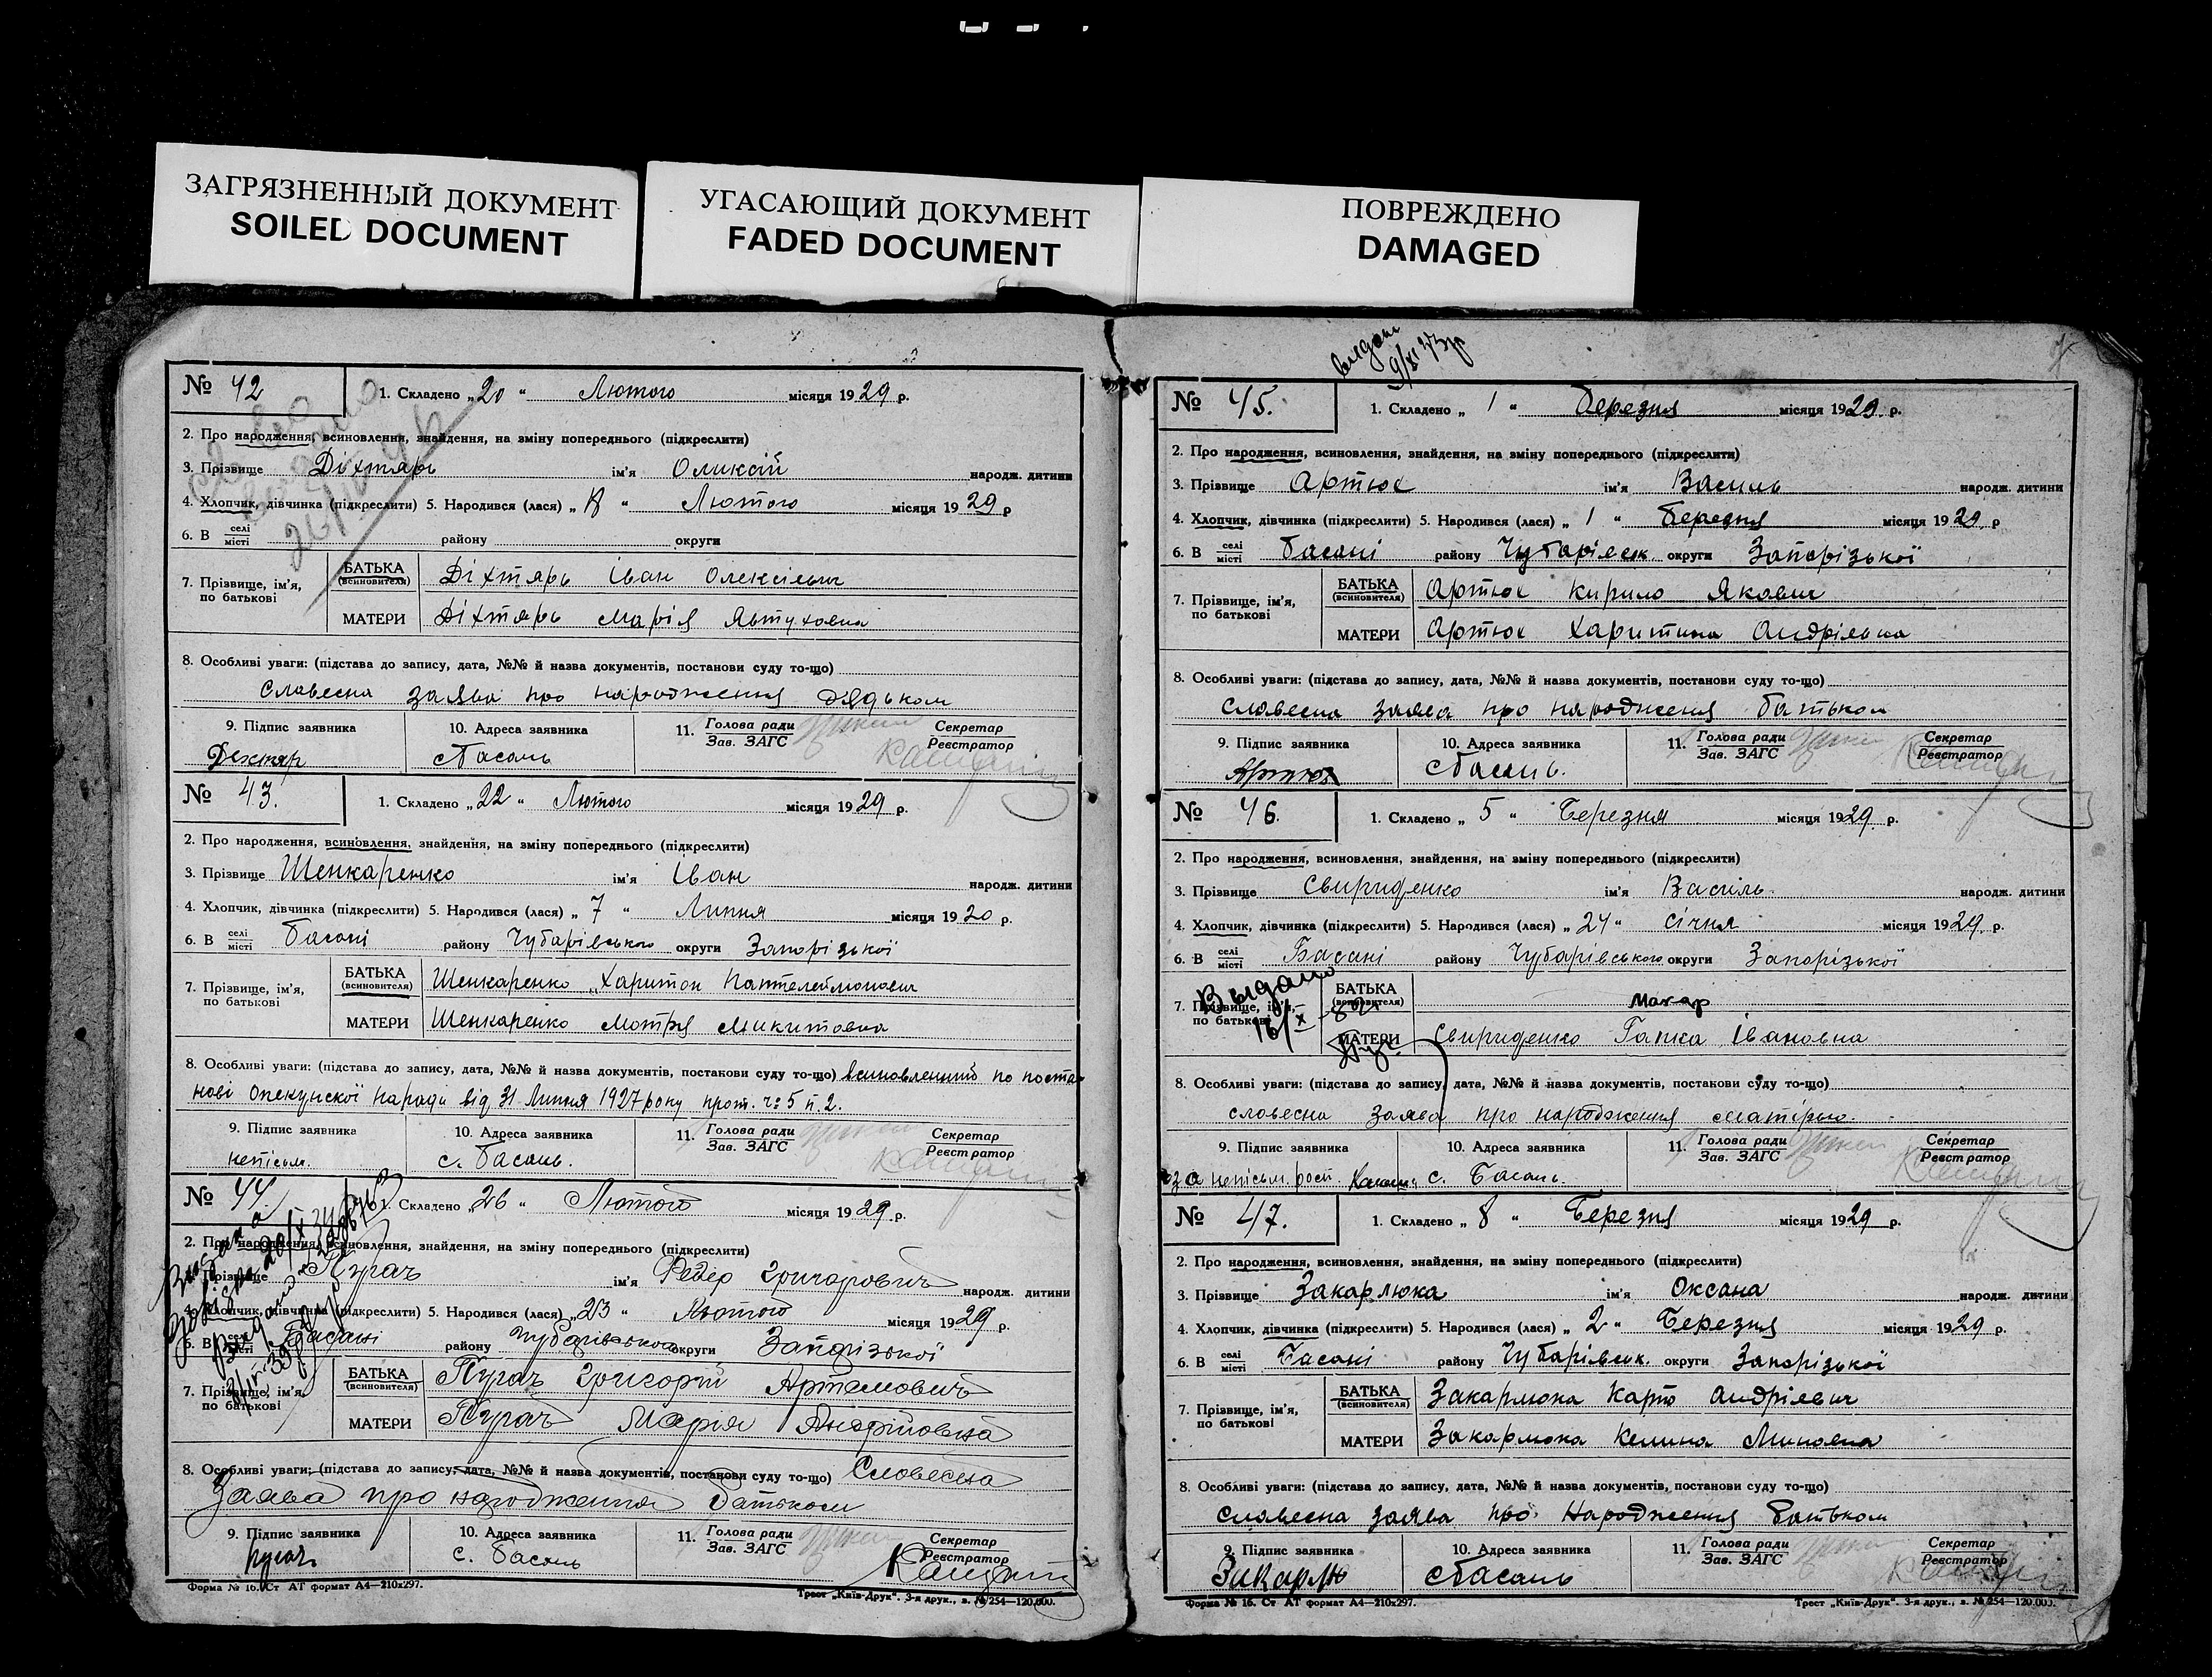 ЗАГРЯЗНЕННЫЙ ДОКУМЕНТ
SOILED DOCUMENT
УГАСАЮЩИЙ ДОКУМЕНТ
FADED DOCUMENT
ПОВРЕЖДЕНО
DAMAGED
№ 42
1. Складено „20“ Лютого місяця 1929 р.
2. Про народження, всиновлення, знайдення, на зміну попереднього (підкреслити)
3. Прізвище Діхтярь ім'я Оликсій народж. дитини
4. Хлопчик, дівчинка (підкреслити) 5. Народився (лася) „ “ Лютого місяця 1929 р
6. В селі місті району округи
7. Прізвище, ім'я, по батькові
БАТЬКА (всиновителя) Діхтярь Іван Олексієвич
МАТЕРИ Діхтярь Марія Явтуховна
8. Особливі уваги: (підстава до запису, дата, №№ й назва документів, постанови суду то-що)
Славесна заява про народження дядьком
9. Підпис заявника 10. Адреса заявника 11. Голова ради Зав. ЗАГС Секретар Реєстратор
Дехтяр с Басань
№ 43.
1. Складено „22“ Лютого місяця 1929 р.
2. Про народження, всиновлення, знайдення, на зміну попереднього (підкреслити)
3. Прізвище Шенкаренко ім'я Іван народж. дитини
4. Хлопчик, дівчинка (підкреслити) 5. Народився (лася) „7“ Липня місяця 1920 р.
6. В селі місті Басані району Чубарівського округи Запорізької
7. Прізвище, ім'я, по батькові
БАТЬКА (всиновителя) Шенкаренко Харитон Пантелеймонович
МАТЕРИ Шенкаренко Мотря Микитовна
8. Особливі уваги: (підстава до запису, дата, №№ й назва документів, постанови суду то-що) всиновленний по поста-
нові Опекунскої Наради від 31 Липня 1927 року прот. ч: 5 п. 2.
9. Підпис заявника 10. Адреса заявника 11. Голова ради Зав. ЗАГС Секретар Реєстратор
непісьм. с. Басань.
№ 44
1. Складено „26“ Лютого місяця 1929 р.
2. Про народження, всиновлення, знайдення, на зміну попереднього (підкреслити)
3. Прізвище Пугачь ім'я Федер народж. дитини
4. Хлопчик, дівчинка (підкреслити) 5. Народився (лася) „23“ Лютого місяця 1929 р.
6. В селі місті Басані району Чубарівського округи Запорізької
7. Прізвище, ім'я, по батькові
БАТЬКА (всиновителя) Пугачь Григорій Артемовичь
МАТЕРИ Пугачь Марія
8. Особливі уваги: (підстава до запису, дата, №№ й назва документів, постанови суду то-що) Словесна
Заява про народження батьком
9. Підпис заявника 10. Адреса заявника 11. Голова ради Зав. ЗАГС Секретар Реєстратор
Пугачь с. Басань
Форма № 16. Ст АТ формат А4—210x297.
Трест „Київ-Друк“. 3-я друк., з. № 254—120.000.
№ 45.
1. Складено „1“ Березня місяця 1929. р.
2. Про народження, всиновлення, знайдення, на зміну попереднього (підкреслити)
3. Прізвище Артюх ім'я Василь народж. дитини
4. Хлопчик, дівчинка (підкреслити) 5. Народився (лася) „1“ Березня місяця 1929. р
6. В селі місті Басані району Чубарівськ. округи Запорізької
7. Прізвище, ім'я, по батькові
БАТЬКА (всиновителя) Артюх Кирило Якович
МАТЕРИ Артюх Харитина Андрієвна
8. Особливі уваги: (підстава до запису, дата, №№ й назва документів, постанови суду то-що)
Славесна заява про народження батьком
9. Підпис заявника 10. Адреса заявника 11. Голова ради Зав. ЗАГС Секретар Реєстратор
Артюх с Басань.
№ 46.
1. Складено „5“ Березня місяця 1929. р.
2. Про народження, всиновлення, знайдення, на зміну попереднього (підкреслити)
3. Прізвище Свириденко ім'я Василь. народж. дитини
4. Хлопчик, дівчинка (підкреслити) 5. Народився (лася) „24“ Січня місяця 1929. р.
6. В селі місті Басані району Чубарівського округи Запорізької
Выдано
7. Прізвище, ім'я, по батькові
БАТЬКА (всиновителя) Макар
МАТЕРИ Свириденко Гапка Івановна
8. Особливі уваги: (підстава до запису, дата, №№ й назва документів, постанови суду то-що)
словесна Заява про народження матірью.
9. Підпис заявника 10. Адреса заявника 11. Голова ради Зав. ЗАГС Секретар Реєстратор
за непісьм. рост. с. Басань.
№ 47.
1. Складено „8“ Березня місяця 1929 р.
2. Про народження, всиновлення, знайдення, на зміну попереднього (підкреслити)
3. Прізвище Закарлюка ім'я Оксана народж. дитини
4. Хлопчик, дівчинка (підкреслити) 5. Народився (лася) „2“ Березня місяця 1929 р.
6. В селі місті Басані району Чубарівськ. округи Запорізької
7. Прізвище, ім'я, по батькові
БАТЬКА (всиновителя) Закарлюка Карпо Андрієвич
МАТЕРИ Закарлюка Келина Миновна
8. Особливі уваги: (підстава до запису, дата, №№ й назва документів, постанови суду то-що)
Славесна заява про Народження батьком
9. Підпис заявника 10. Адреса заявника 11. Голова ради Зав. ЗАГС Секретар Реєстратор
Закарлю с Басань
Форма № 16. Ст АТ формат А4—210x297.
Трест „Київ-Друк“. 3-я друк., з. № 254—120.000.